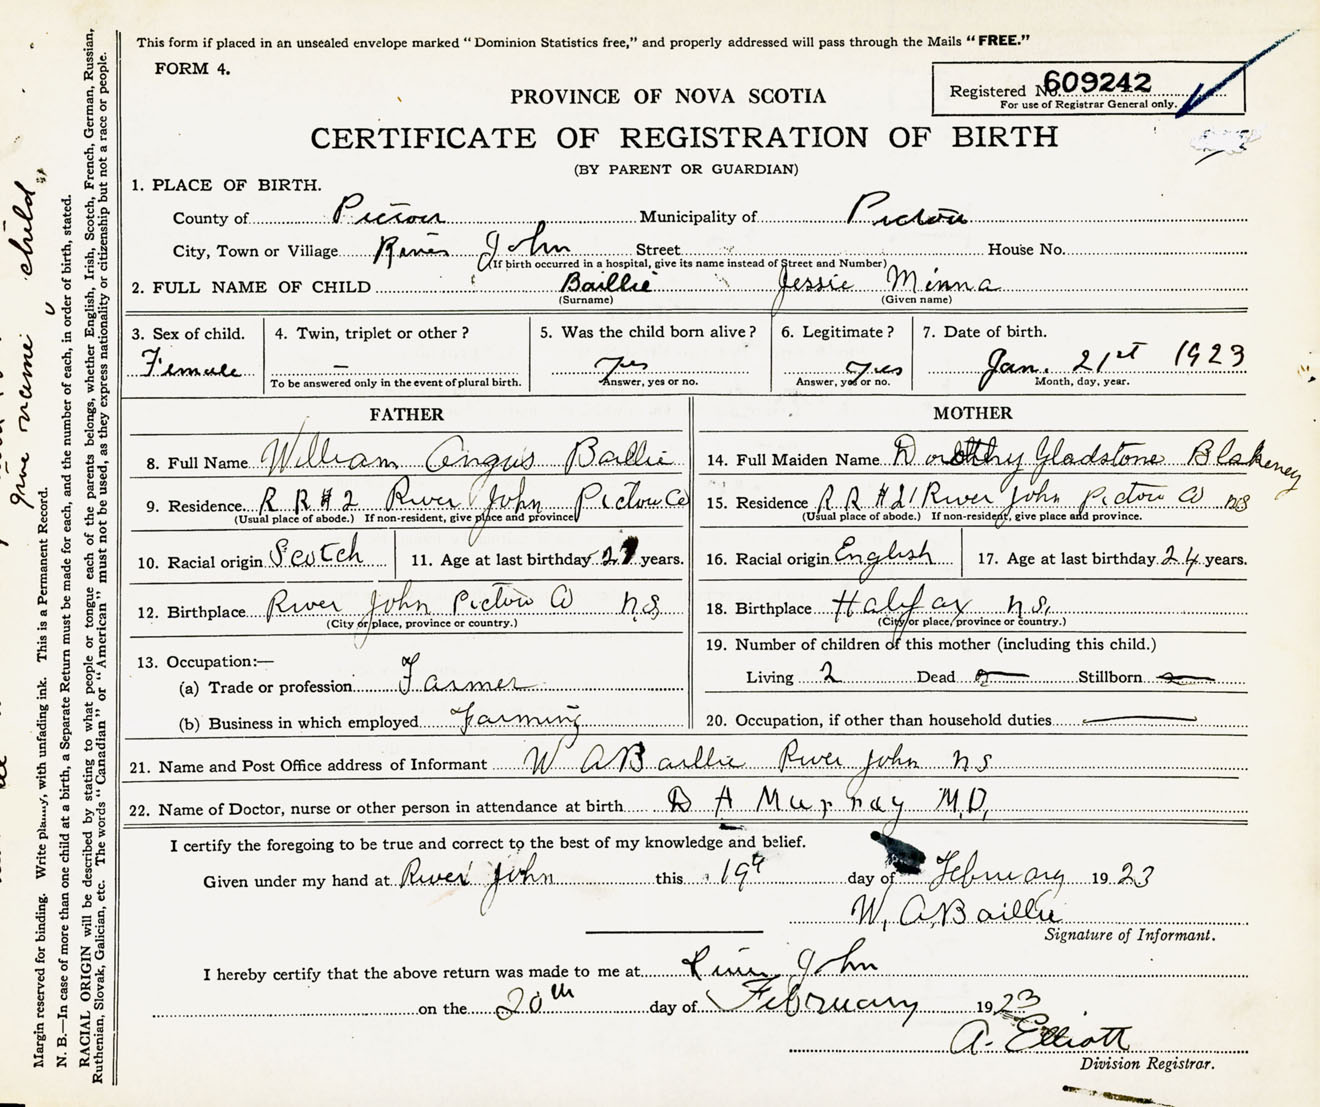 This form if placed in an unsealed envelope marked “Dominion Statistics free,” and properly addressed will pass through the Mails “FREE.”
FORM 4.
Registered No. 609242
For use of Registrar General only.
PROVINCE OF NOVA SCOTIA
CERTIFICATE OF REGISTRATION OF BIRTH
(BY PARENT OR GUARDIAN)
1. PLACE OF BIRTH.
County of Pictou Municipality of Pictou
City, Town or Village River John Street House No.
(If birth occurred in a hospital, give its name instead of Street and Number)
2. FULL NAME OF CHILD Baillie Jessie Minna
(Surname) (Given name)
3. Sex of child. 4. Twin, triplet or other? 5. Was the child born alive? 6. Legitimate? 7. Date of birth.
Female — yes yes Jan. 21st 1923
To be answered only in the event of plural birth. Answer, yes or no. Answer, yes or no. Month, day, year.
FATHER MOTHER
8. Full Name William Angus Baillie 14. Full Maiden Name Dorothy Gladstone Blakeney
9. Residence R R #2 River John Pictou Co 15. Residence R R #2 River John Pictou Co NS
(Usual place of abode.) If non-resident, give place and province (Usual place of abode.) If non-resident, give place and province.
10. Racial origin Scotch 11. Age at last birthday 27 years. 16. Racial origin English 17. Age at last birthday 24 years.
12. Birthplace River John Pictou Co N.S 18. Birthplace Halifax N.S.
(City or place, province or country.) (City or place, province or country.)
19. Number of children of this mother (including this child.)
13. Occupation:—
(a) Trade or profession Farmer Living 2 Dead Stillborn
(b) Business in which employed Farming 20. Occupation, if other than household duties
21. Name and Post Office address of Informant W A Baillie River John NS
22. Name of Doctor, nurse or other person in attendance at birth D A Murray M.D.
I certify the foregoing to be true and correct to the best of my knowledge and belief.
Given under my hand at River John this 19th day of February 1923
W. A. Baillie
Signature of Informant.
I hereby certify that the above return was made to me at River John
on the 20th day of February 1923
A. Elliott
Division Registrar.
give name child
Margin reserved for binding. Write plainly, with unfading ink. This is a Permanent Record.
N. B.—In case of more than one child at a birth, a Separate Return must be made for each, and the number of each, in order of birth, stated.
RACIAL ORIGIN will be described by stating to what people or tongue each of the parents belongs, whether English, Irish, Scotch, French, German, Russian,
Ruthenian, Slovak, Galician, etc. The words “Canadian” or “American” must not be used, as they express nationality or citizenship but not a race or people.